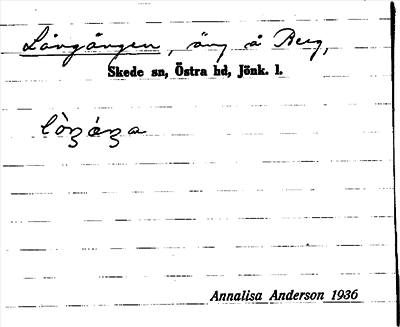 Lövgången, äng å Berg,
Skede sn, Östra hd, Jönk. l.
Annalisa Anderson 1936